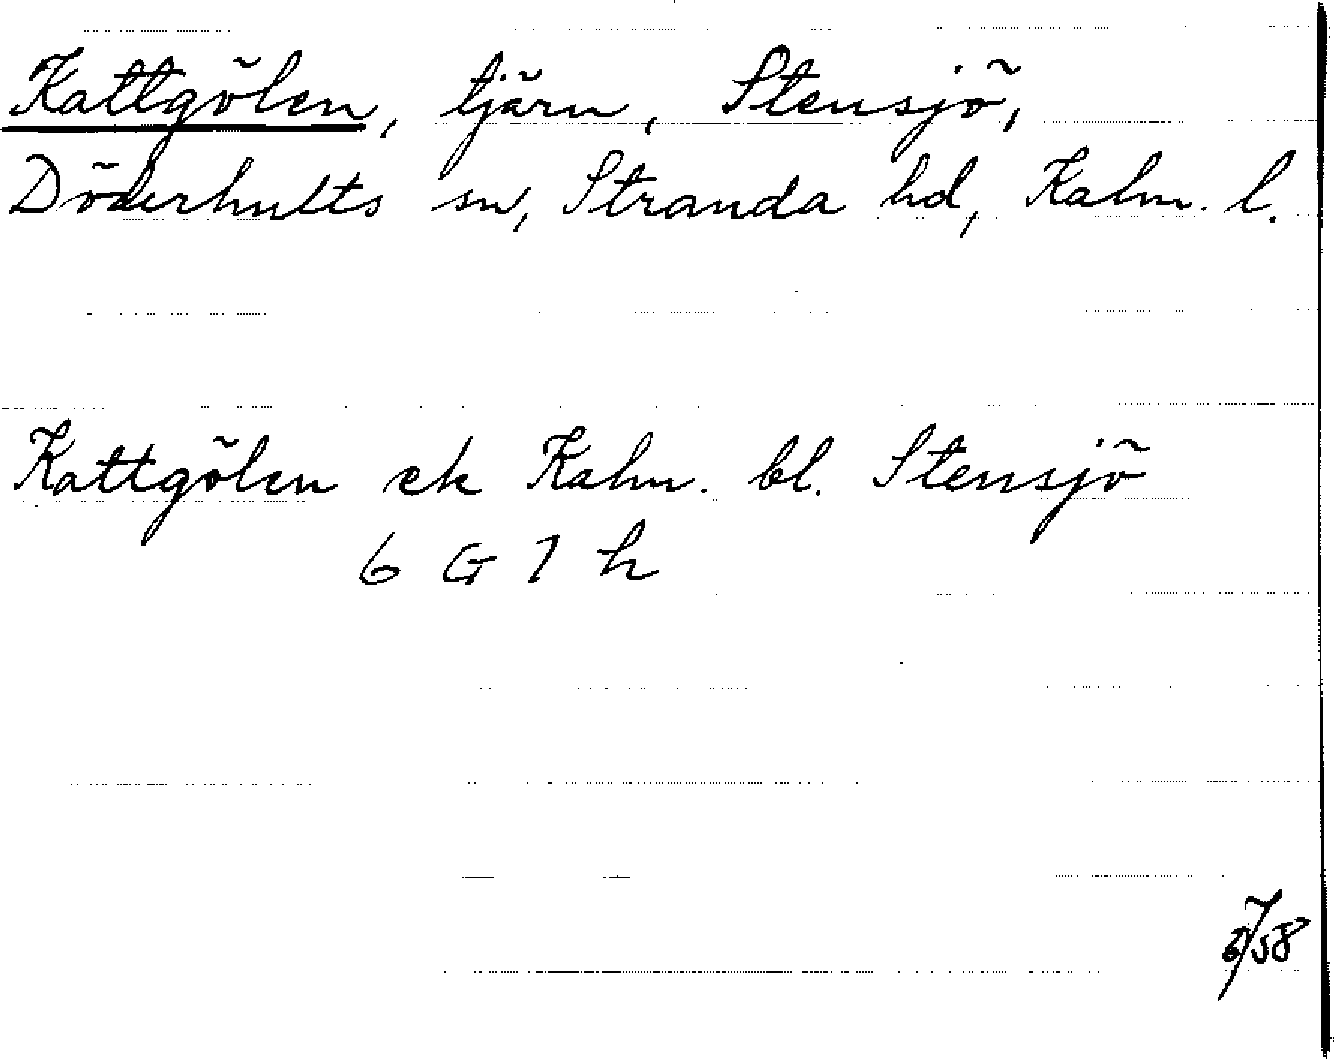 Kattgölen, tjärn, Stensjö,
Döderhults sn, Stranda hd, Kalm. l.
Kattgölen ek Kalm. bl. Stensjö
6 G 7 h